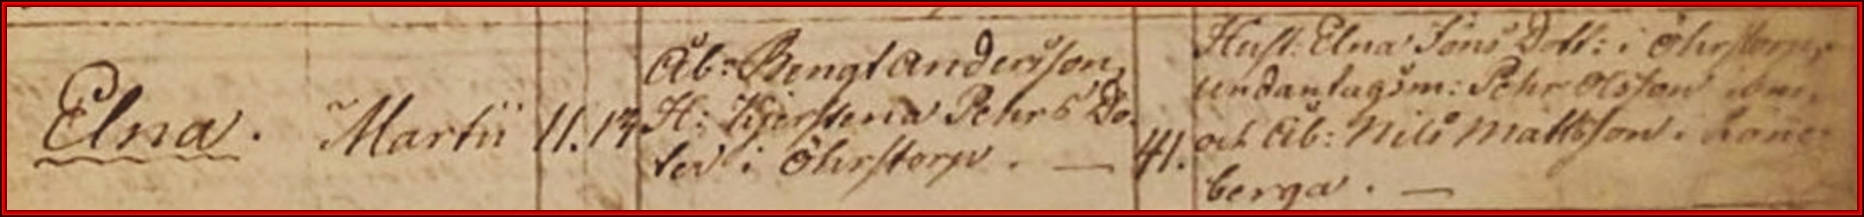 Elna. Martii 11. 13
Åb: Bengt Andersson,
H: Kjerstena Pehrs Do-
ter i Öhrstorp. —
41.
Hust: Elna Jöns Dott: i Öhrstorp,
undantagsm: Pehr Olsson
och Åb: Nils Mattsson i Rone-
berga. —